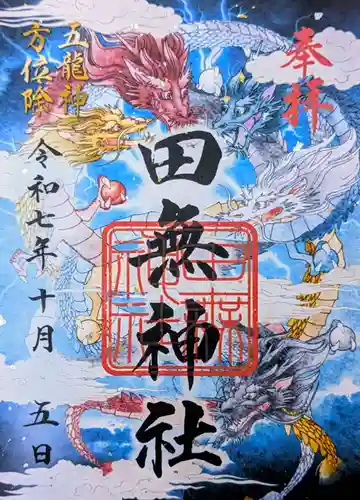 奉拝
田無神社
五龍神
方位除
令和七年十月 五日